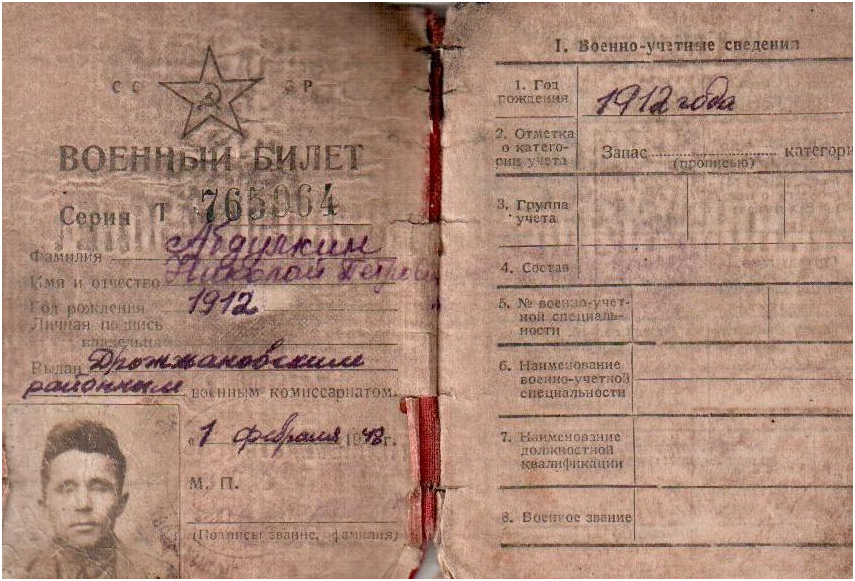 СС СР
ВОЕННЫЙ БИЛЕТ
Серия Т 765964
Фамилия Абдулкин
Имя и отчество Николай Петрович
Год рождения 1912
Личная подпись
владельца
Выдан Дрожжановским
районным военным комиссариатом.
„1 февраля 1948 г.
М. П.
(Подпись, звание, фамилия)
I. Военно-учетные сведения
1. Год
рождения
1912 года
2. Отметка
о катего-
рии учета
Запас категори
(прописью)
3. Группа
учета
4. Состав
5. № военно-учет-
ной специаль-
ности
6. Наименование
военно-учетной
специальности
7. Наименование
должностной
квалификации
8. Военное звание